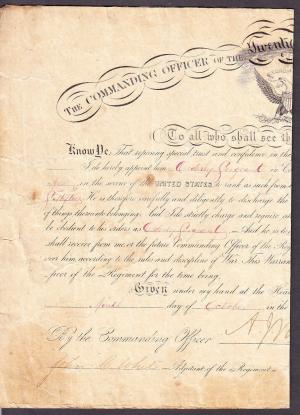 THE COMMANDING OFFICER OF THE Twentie
To all who shall see th
Know Ye, That reposing special trust and confidence in the
I do hereby appoint him Orderly Sergeant in C
in the service of the UNITED STATES, to rank as such from
He is therefore carefully and diligently to discharge the
of things thereunto belonging. And I do strictly charge and require a
be obedient to his orders as Orderly Sergeant. And he is to
shall receive from me or the future Commanding Officer of the Reg
over him according to the rules and discipline of War. This Warran
ficer of the Regiment for the time being.
Given under my hand at the Head
day of October in the
By the Commanding Officer
Adjutant of the Regiment.